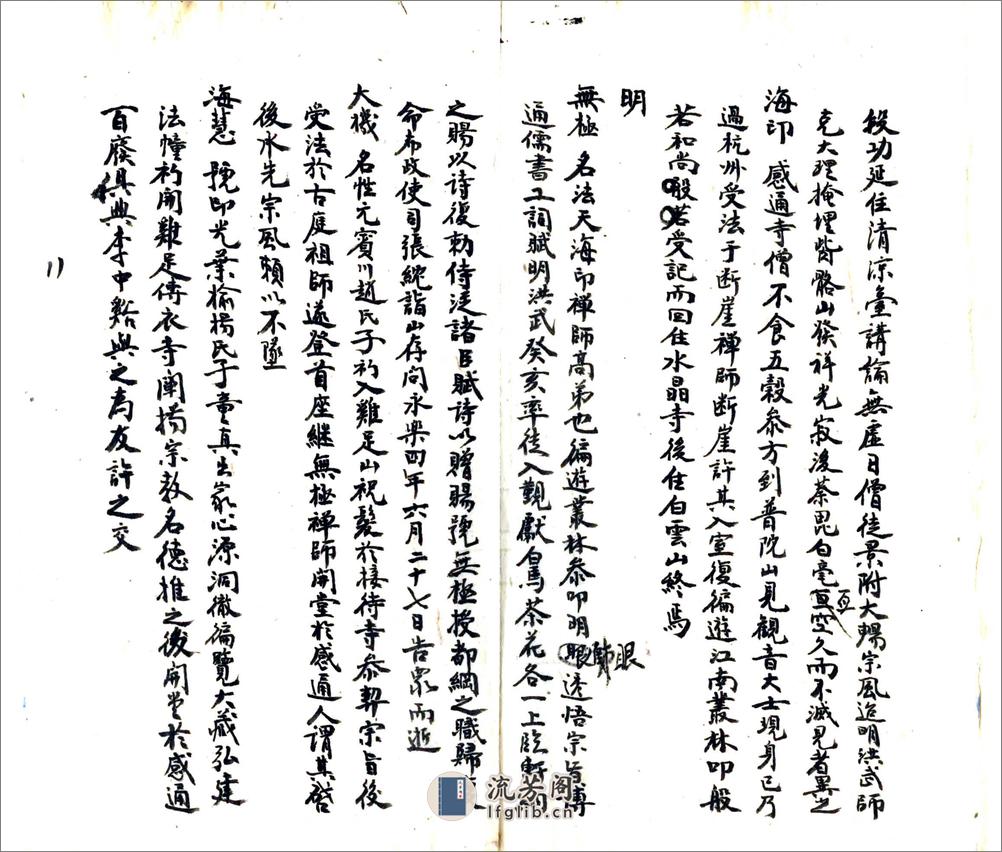 投功延住清凉臺講論無虛日僧徒景附大暢宗風迨明洪武師
克大理掩埋骴骼山發祥光寂後荼毘白毫亘空久而不滅見者異之
亘
海印 感通寺僧不食五穀叅方到普陀山見觀音大士現身已乃
過杭州受法于断崖禪師断崖許其入室復徧遊江南叢林叩般
若和尚般若受記而回住水晶寺後住白雲山終焉
明
無極 名法天海印禅師高弟也徧遊叢林叅叩明眼透悟宗旨博
眼師
通儒書工詞賦明洪武癸亥率徒入覲獻白馬茶花各一上臨軒
之賜以詩復勅侍從諸臣賦詩以贈賜號無極授都綱之職歸
命布政使司張紞詣山存問永樂四年六月二十七日告衆而逝
大機 名性元賓川趙氏子初入雞足山祝髮於接待寺叅契宗旨後
受法於古庭祖師遂登首座継無極禅師開堂於感通人謂其啓
後承先宗風頼以不墜
海慧 號印光葉榆楊氏子童真出家心源洞徹徧覽大藏弘建
法幢初開雞足傳衣寺闡揚宗教名德推之後開堂於感通
百廢俱興李中谿與之為友許之交
11
流芳阁
lfglib.cn